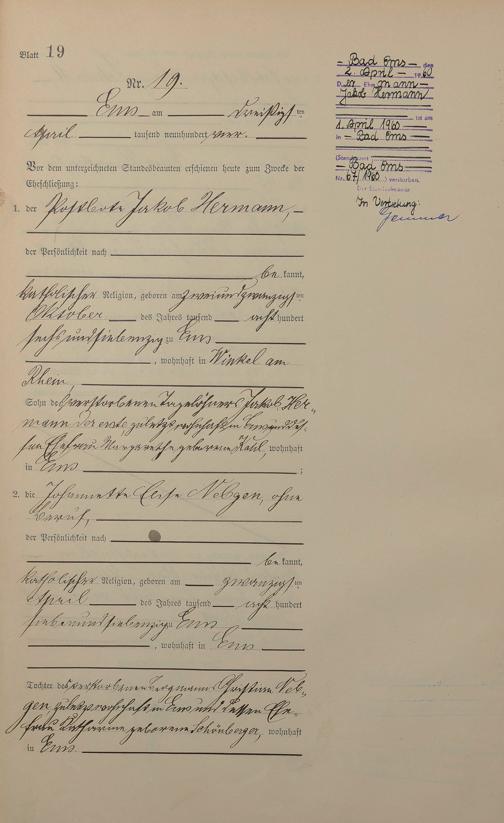 Blatt 19
Nr. 19.
Ems am dreißigsten
April tausend neunhundert vier.
Vor dem unterzeichneten Standesbeamten erschienen heute zum Zwecke der
Eheschließung:
1. der Postbote Jakob Hermann,
der Persönlichkeit nach
bekannt,
katholischer Religion, geboren am zweiundzwanzigsten
Oktober des Jahres tausend achthundert
sechsundsiebenzig zu Ems
, wohnhaft in Winkel am
Rhein,
Sohn des verstorbenen Tagelöhners Jakob Her-
mann zuletzt wohnhaft in Ems und des-
sen Ehefrau Margarethe geborene, wohnhaft
in Ems ;
2. die Johannette Elise Nebgen, ohne
Beruf,
der Persönlichkeit nach
bekannt,
katholischer Religion, geboren am zwanzigsten
April des Jahres tausend achthundert
siebenundsiebenzig zu Ems
, wohnhaft in Ems
Tochter des verstorbenen Bergmanns Christian Neb-
gen zuletzt wohnhaft in Ems und dessen Ehe-
frau Katharine geborene Schönberger, wohnhaft
in Ems
Bad Ems den
2. April 1960
Der Ehemann
Jakob Hermann
ist am
1. April 1960
in Bad Ems
(Standesamt
Bad Ems
Nr. 67/1960) verstorben.
Der Standesbeamte
In Vertretung: